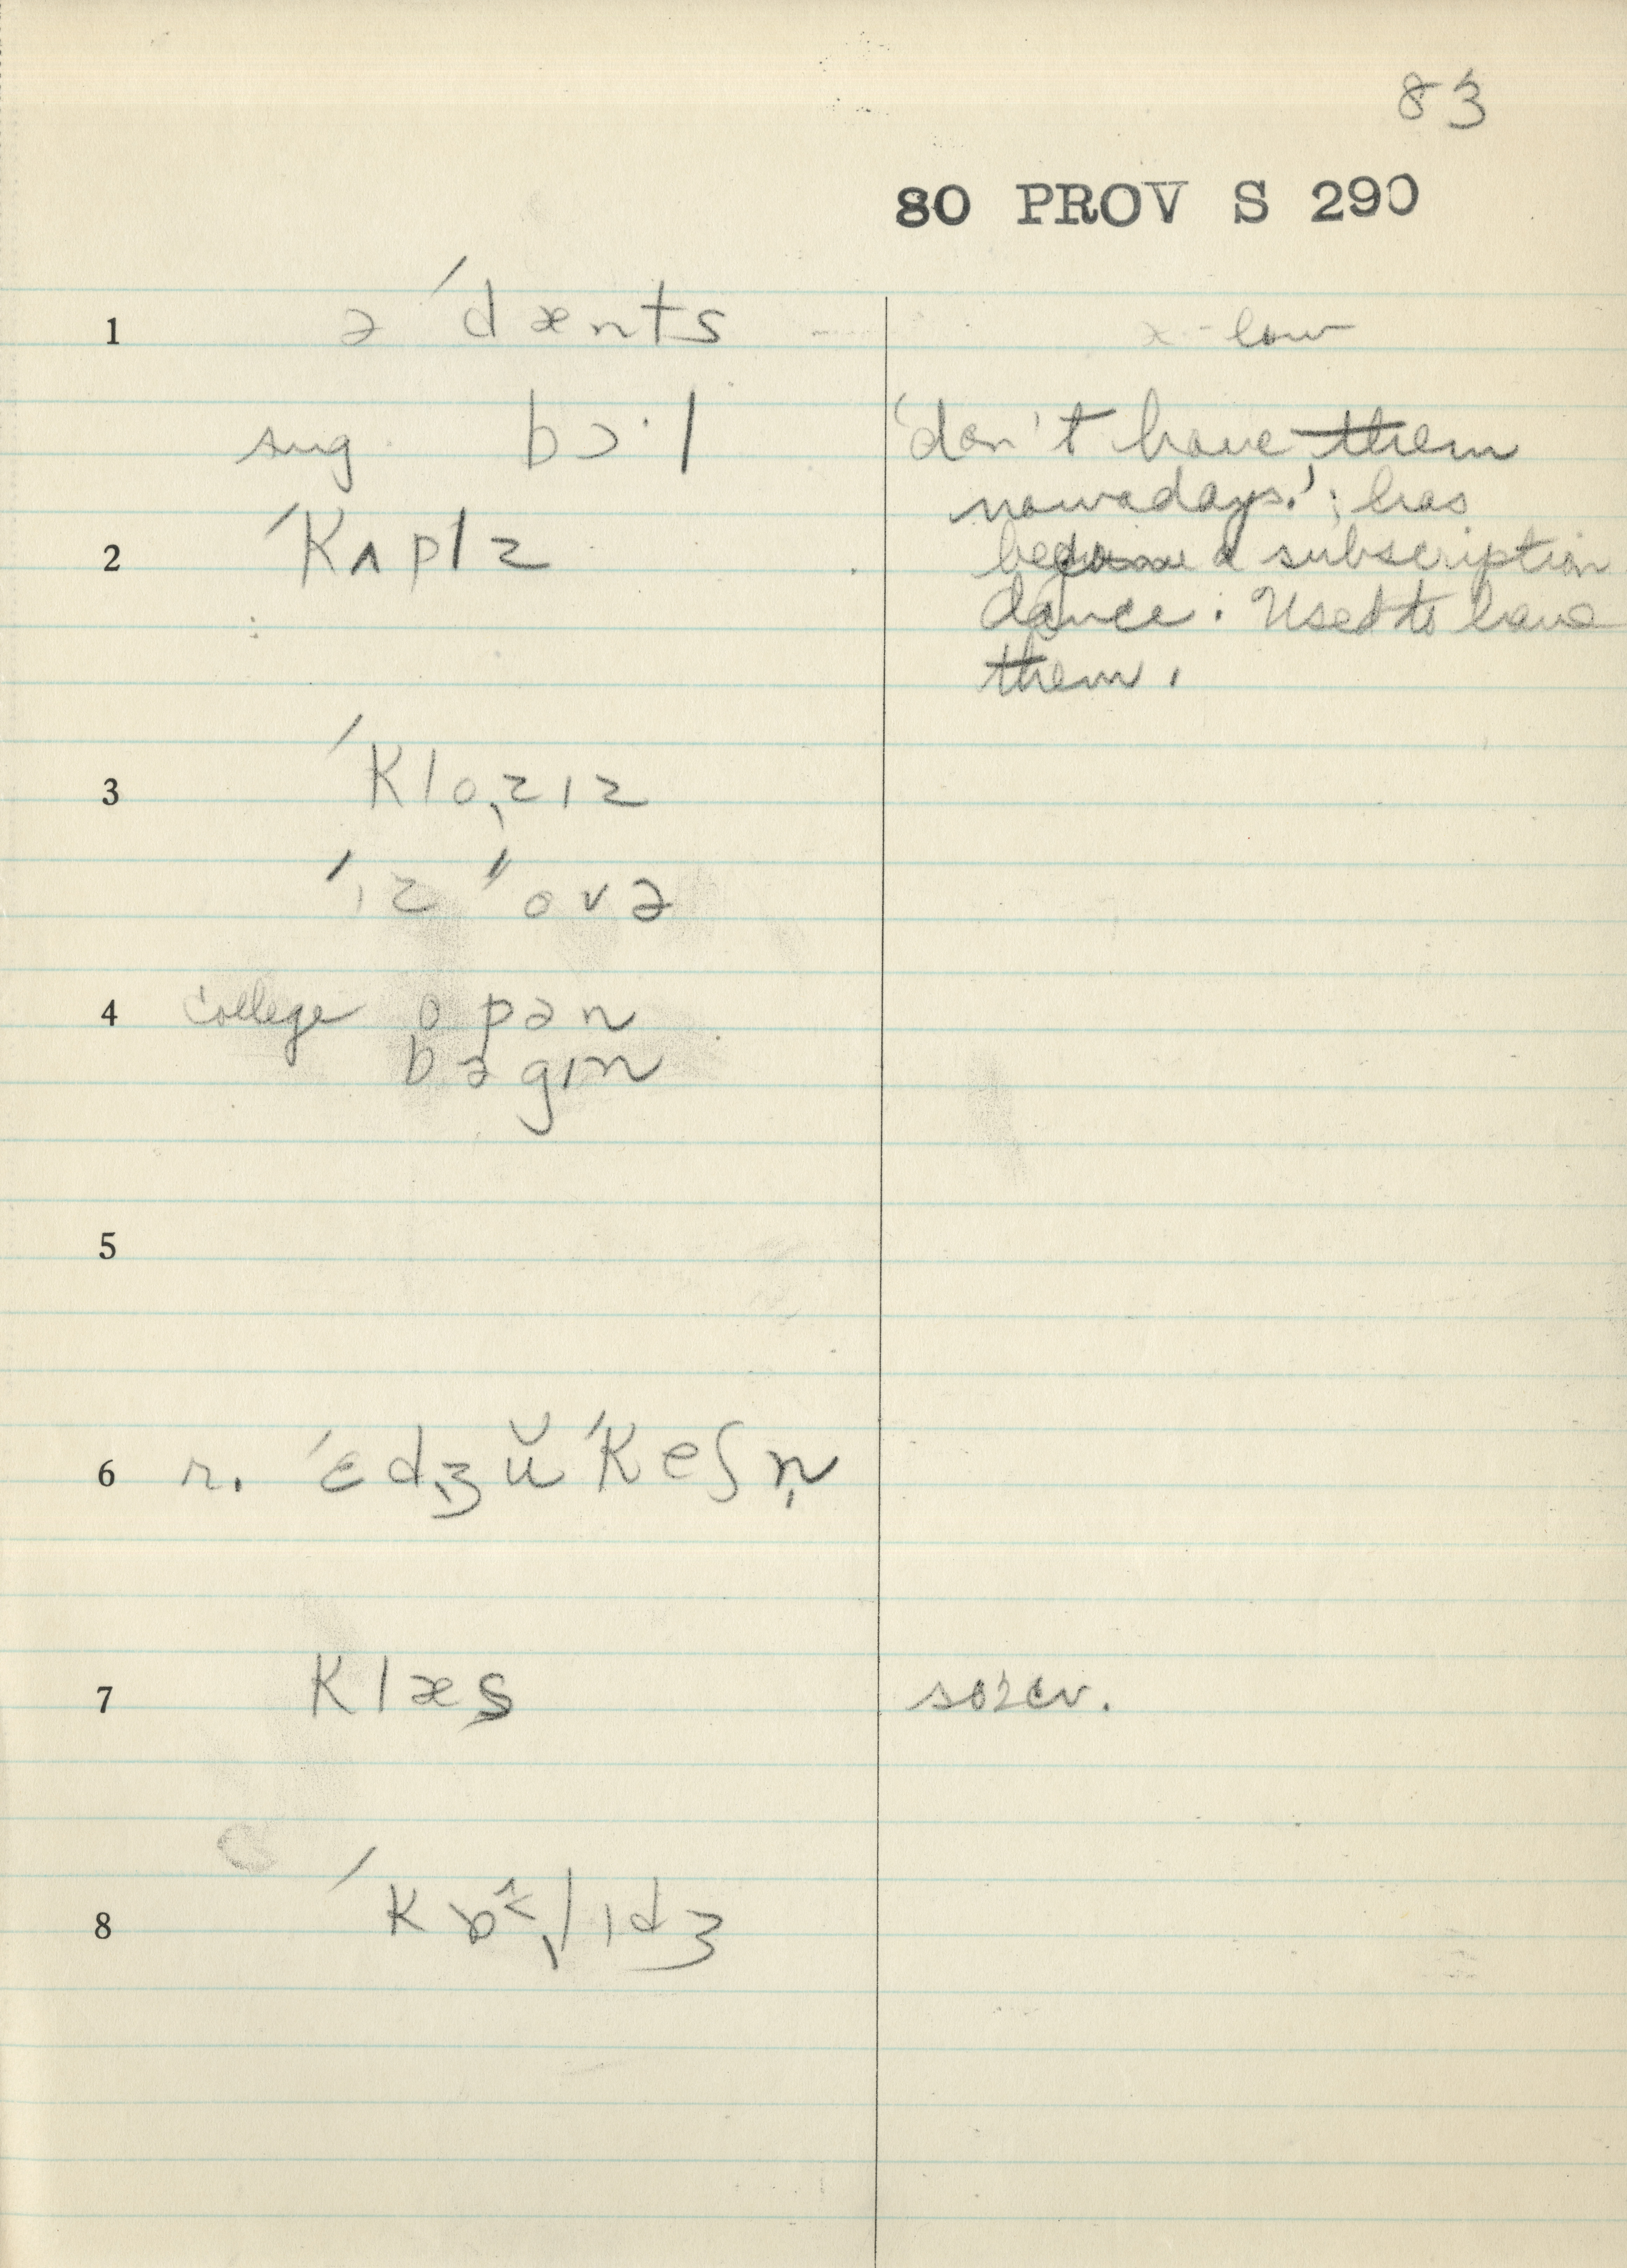 83
80 PROV S 290
1 ə ˈdænts x - low
sug. bɔ·l 'don't have them
nowadays.'; has
2 ˈKʌplz become a subscription
dance. Used to have
them.
3 ˈKloˎzɪz
ˈɪz ˈˈovə
4 college opən
bəgɪn
5
6 r. ˈɛdˎʒŭˈKeʃn̩
7 Klæs
8 ˈK lɪdʒ